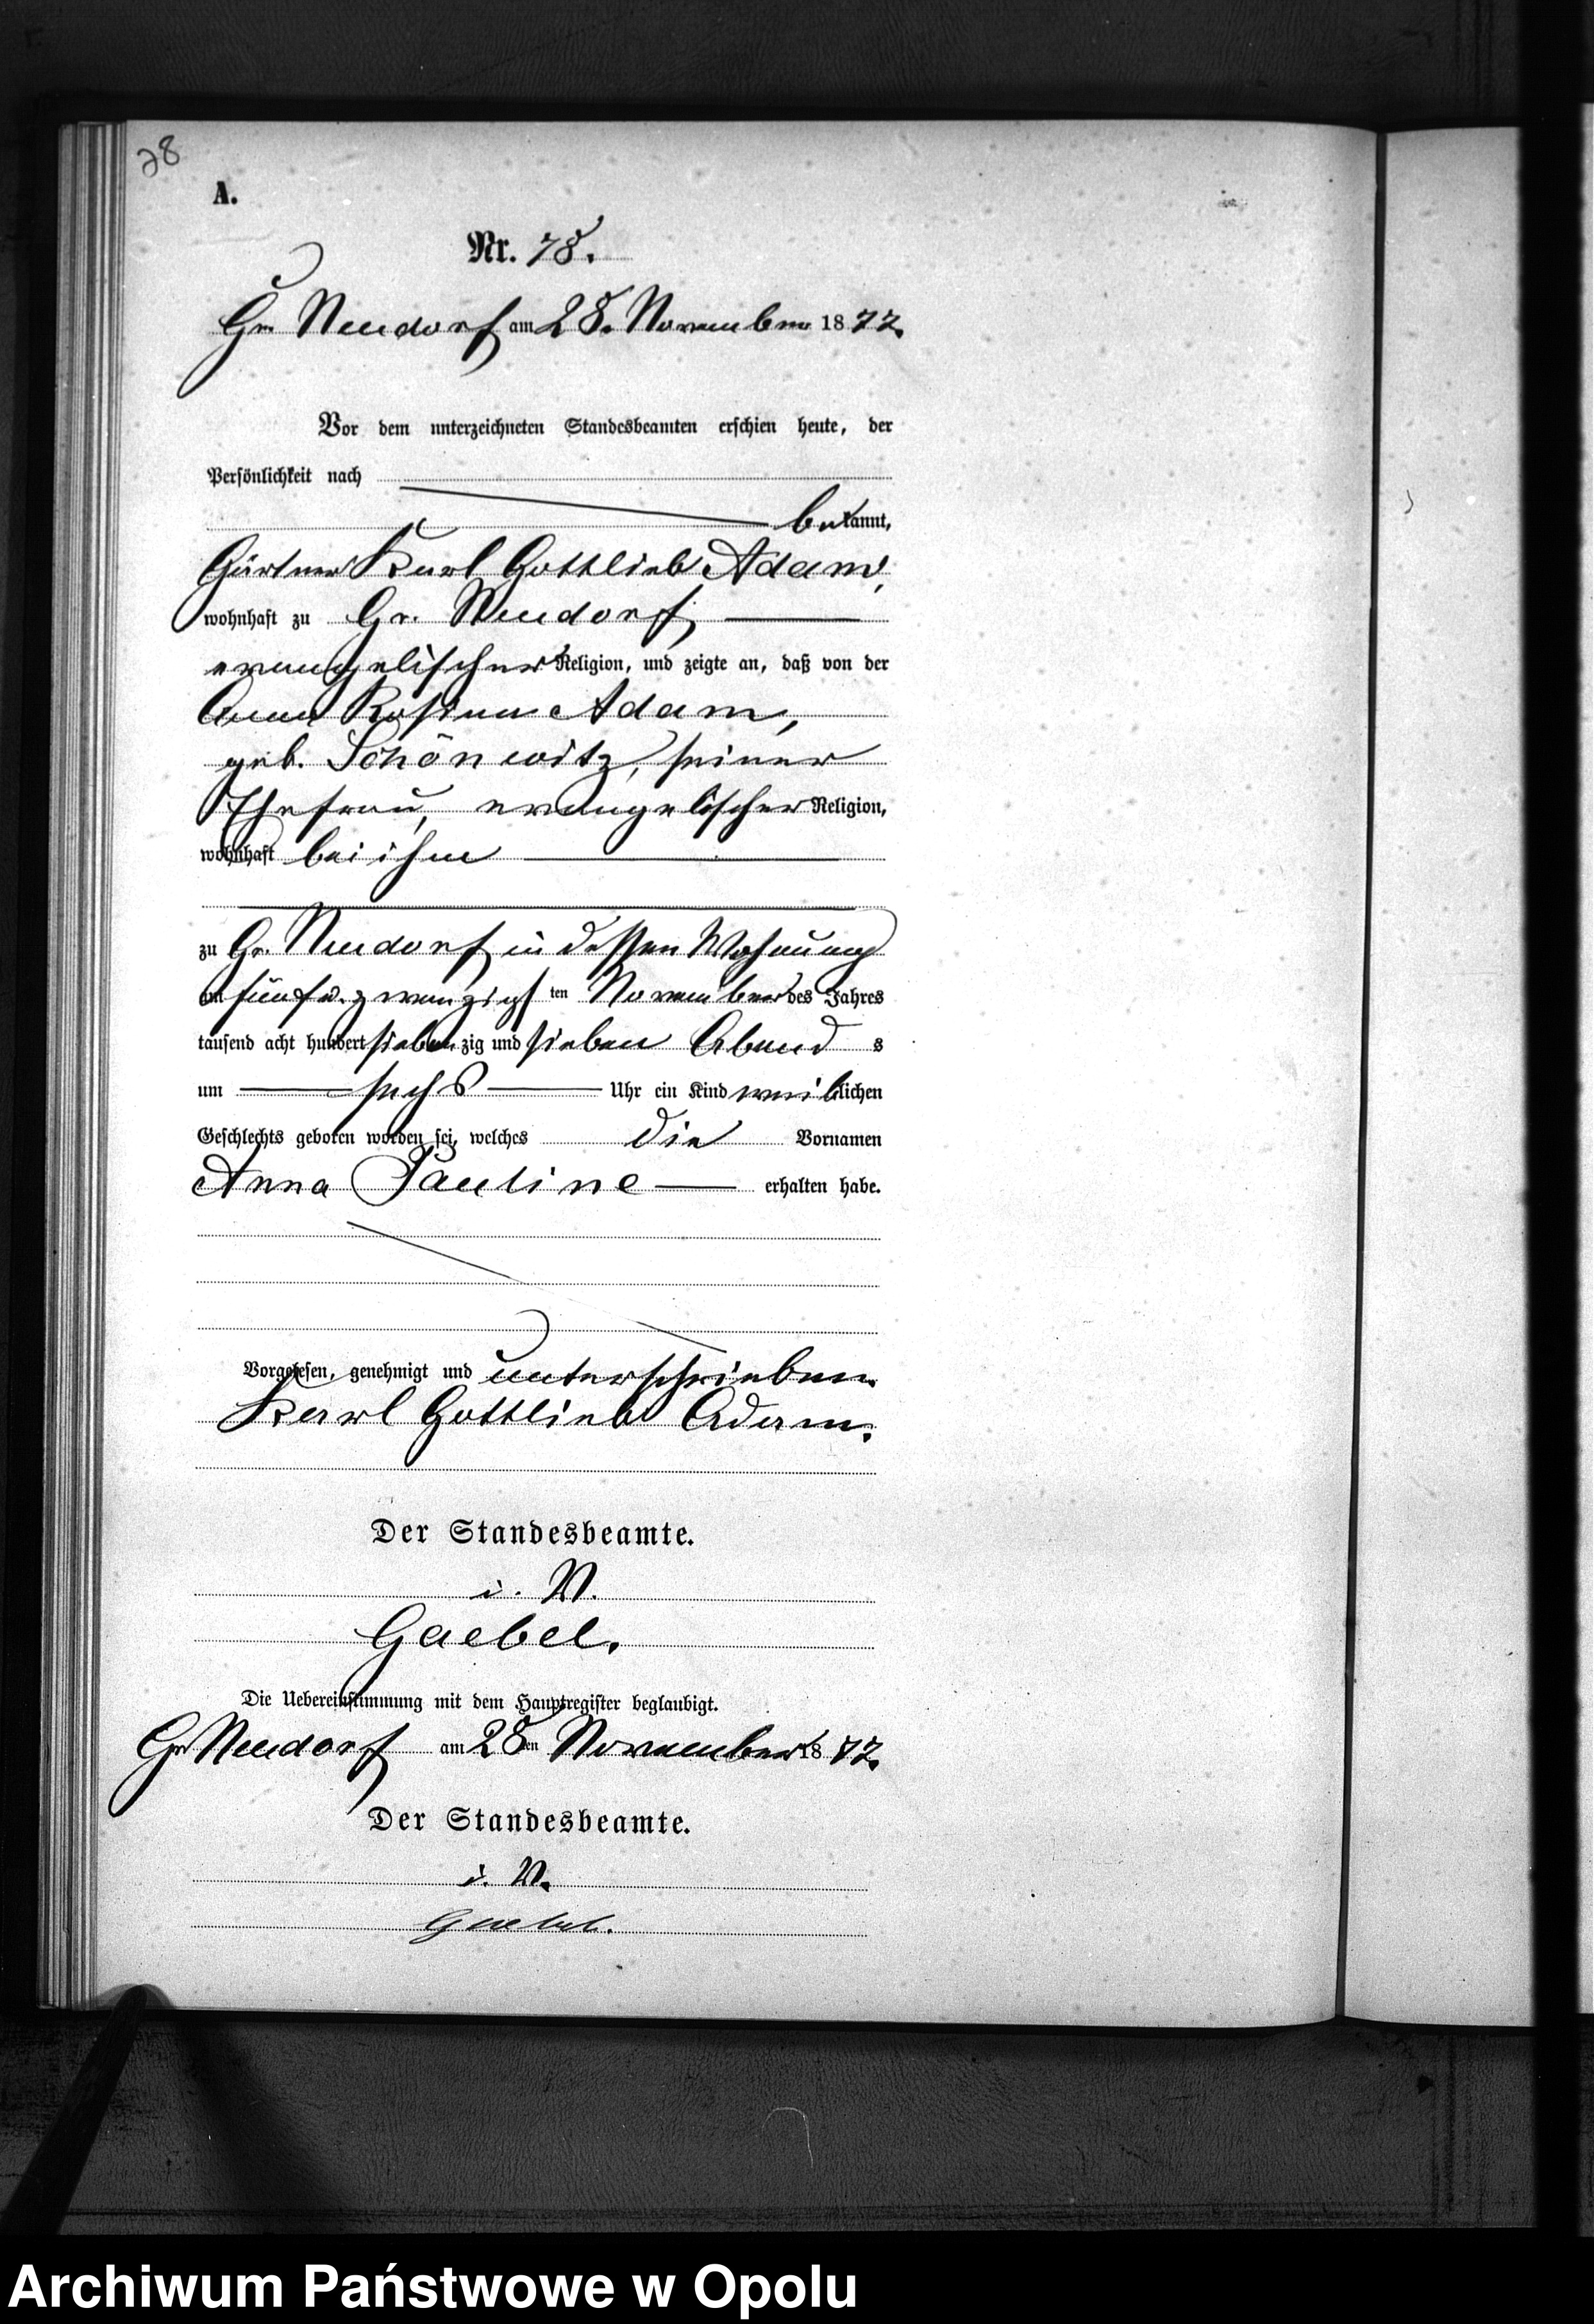 78
A.
Nr. 78.
Gr. Neudorf am 28. November 1877.
Vor dem unterzeichneten Standesbeamten erschien heute, der
Persönlichkeit nach
bekannt,
Gärtner Karl Gottlieb Adam,
wohnhaft zu Gr. Neudorf,
evangelischer Religion, und zeigte an, daß von der
Anna Rosina Adam,
geb. Schönwitz, seiner
Ehefrau, evangelischer Religion,
wohnhaft bei ihm
zu Gr. Neudorf in dessen Wohnung
am fünf u. zwanzigsten November des Jahres
tausend acht hundert siebenzig und sieben Abends
um sechs Uhr ein Kind weiblichen
Geschlechts geboren worden sei, welches die Vornamen
Anna Pauline erhalten habe.
Vorgelesen, genehmigt und unterschrieben.
Karl Gottlieb Adam.
Der Standesbeamte.
i. V.
Gaebel.
Die Uebereinstimmung mit dem Hauptregister beglaubigt.
Gr Neudorf am 28ten November 1877.
Der Standesbeamte.
i. V.
Gaebel.
Archiwum Państwowe w Opolu